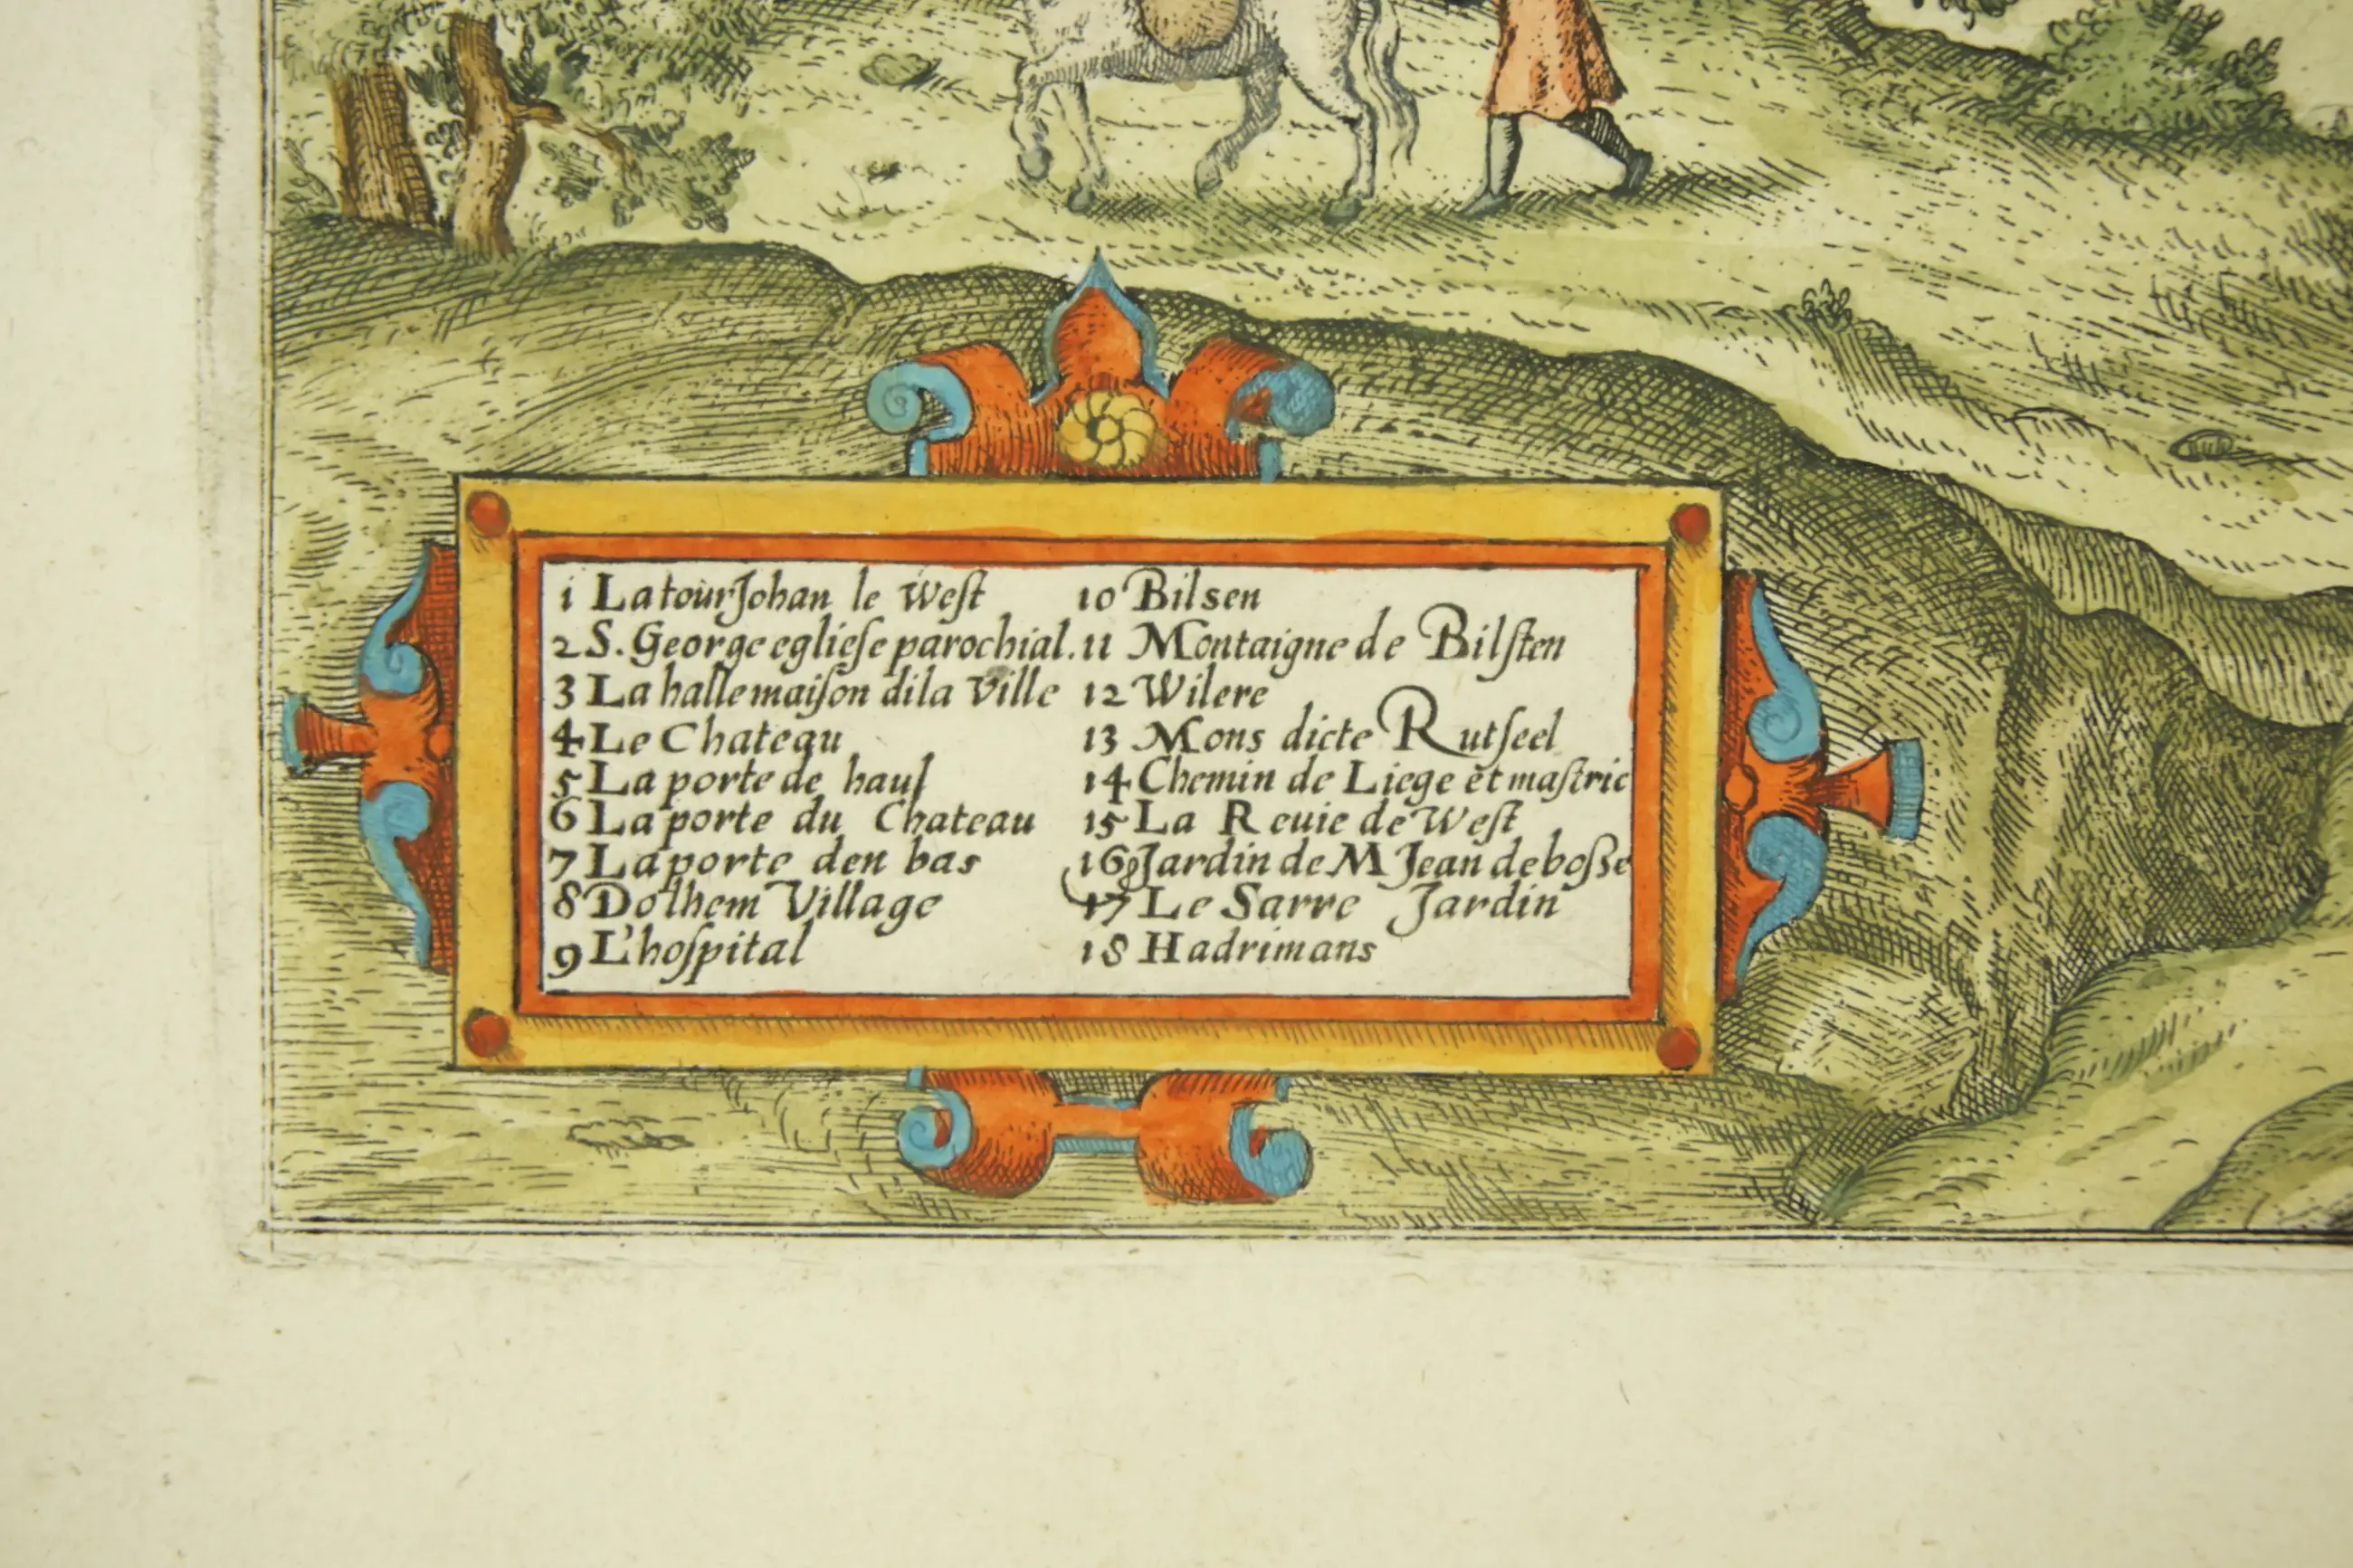 1 La tour Johan le West
2 S. George egliese parochial.
3 La halle maison dila Ville
4 Le Chateau
5 La porte de haul
6 La porte du Chateau
7 La porte den bas
8 Dolhem Village
9 L'hospital
10 Bilsen
11 Montaigne de Bilsten
12 Wilere
13 Mons dicte Rutseel
14 Chemin de Liege et mastric
15 La Reuie de West
16 Jardin de M Jean de bosse
17 Le Sarre Jardin
18 Hadrimans